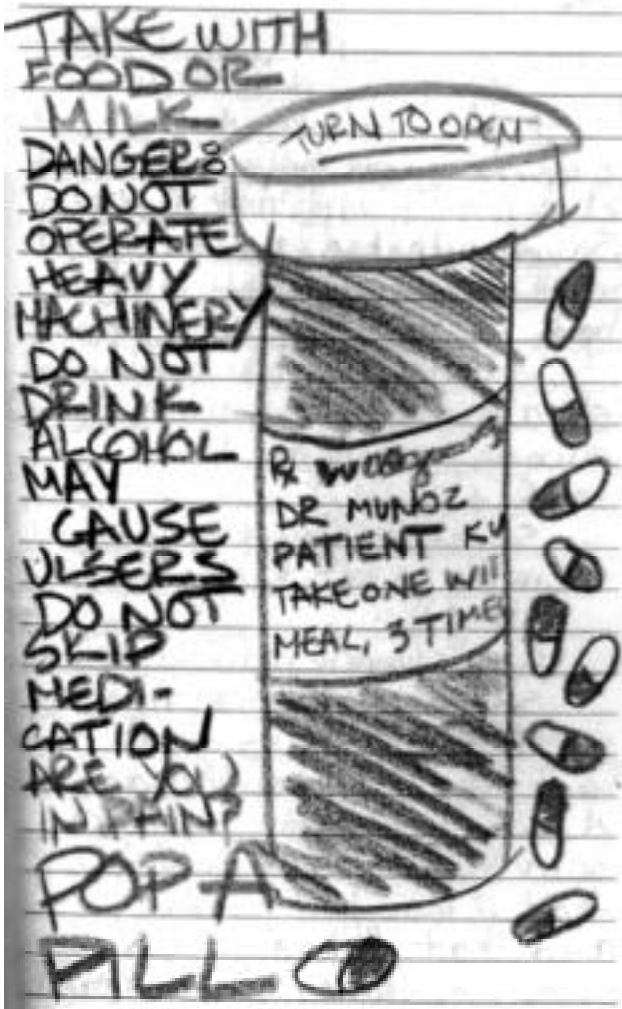 TAKE WITH
FOOD OR
MILK
DANGER:
DO NOT
OPERATE
HEAVY
MACHINERY
DO NOT
DRINK
ALCOHOL
MAY
CAUSE
ULSERS
DO NOT
SKIP
MEDI-
CATION
ARE YOU
IN PAIN?
POP A
PILL
TURN TO OPEN
Rx
DR MUNOZ
PATIENT KU
TAKE ONE WIT
MEAL, 3 TIMES